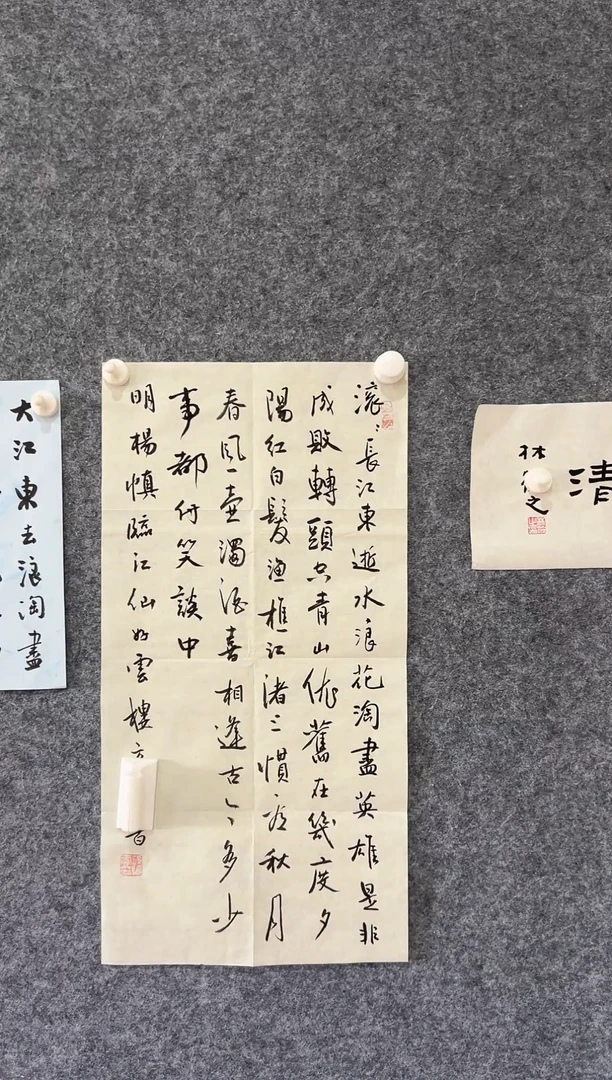 清
林 之
滚〻長江東逝水浪花淘盡英雄是非
成敗轉頭空青山依舊在幾度夕
陽紅白髮漁樵江渚上慣看秋月
春風一壺濁酒喜相逢古今多少
事都付笑談中
明楊慎臨江仙 雲樓
大江東去浪淘盡